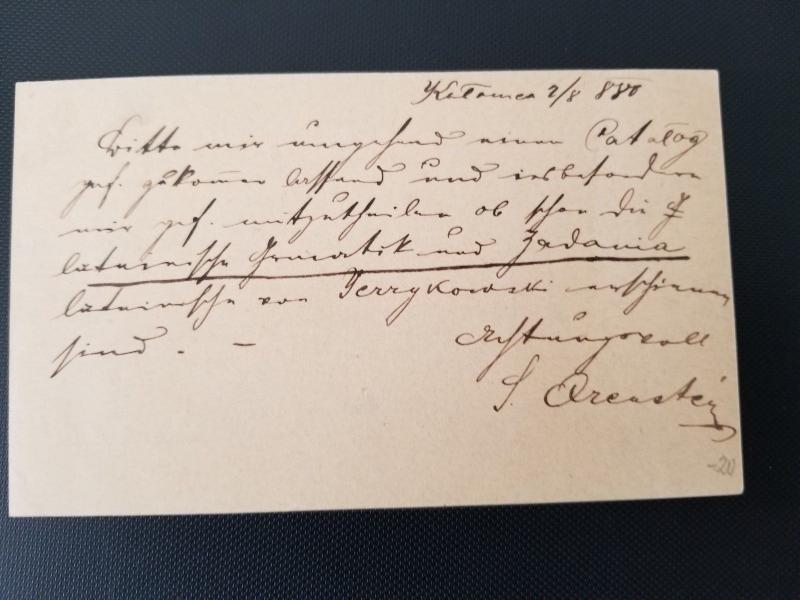 Kołomea 2/8 880
Bitte mir umgehend einen Catalog
gef. zukommen lassend und insbesondere
mir gef. mitzutheilen ob schon die
lateinische Gramatik und Zadania
lateinische von Jerzykowski erschienen
sind. —
Achtungsvoll
S. Orenstein
-20